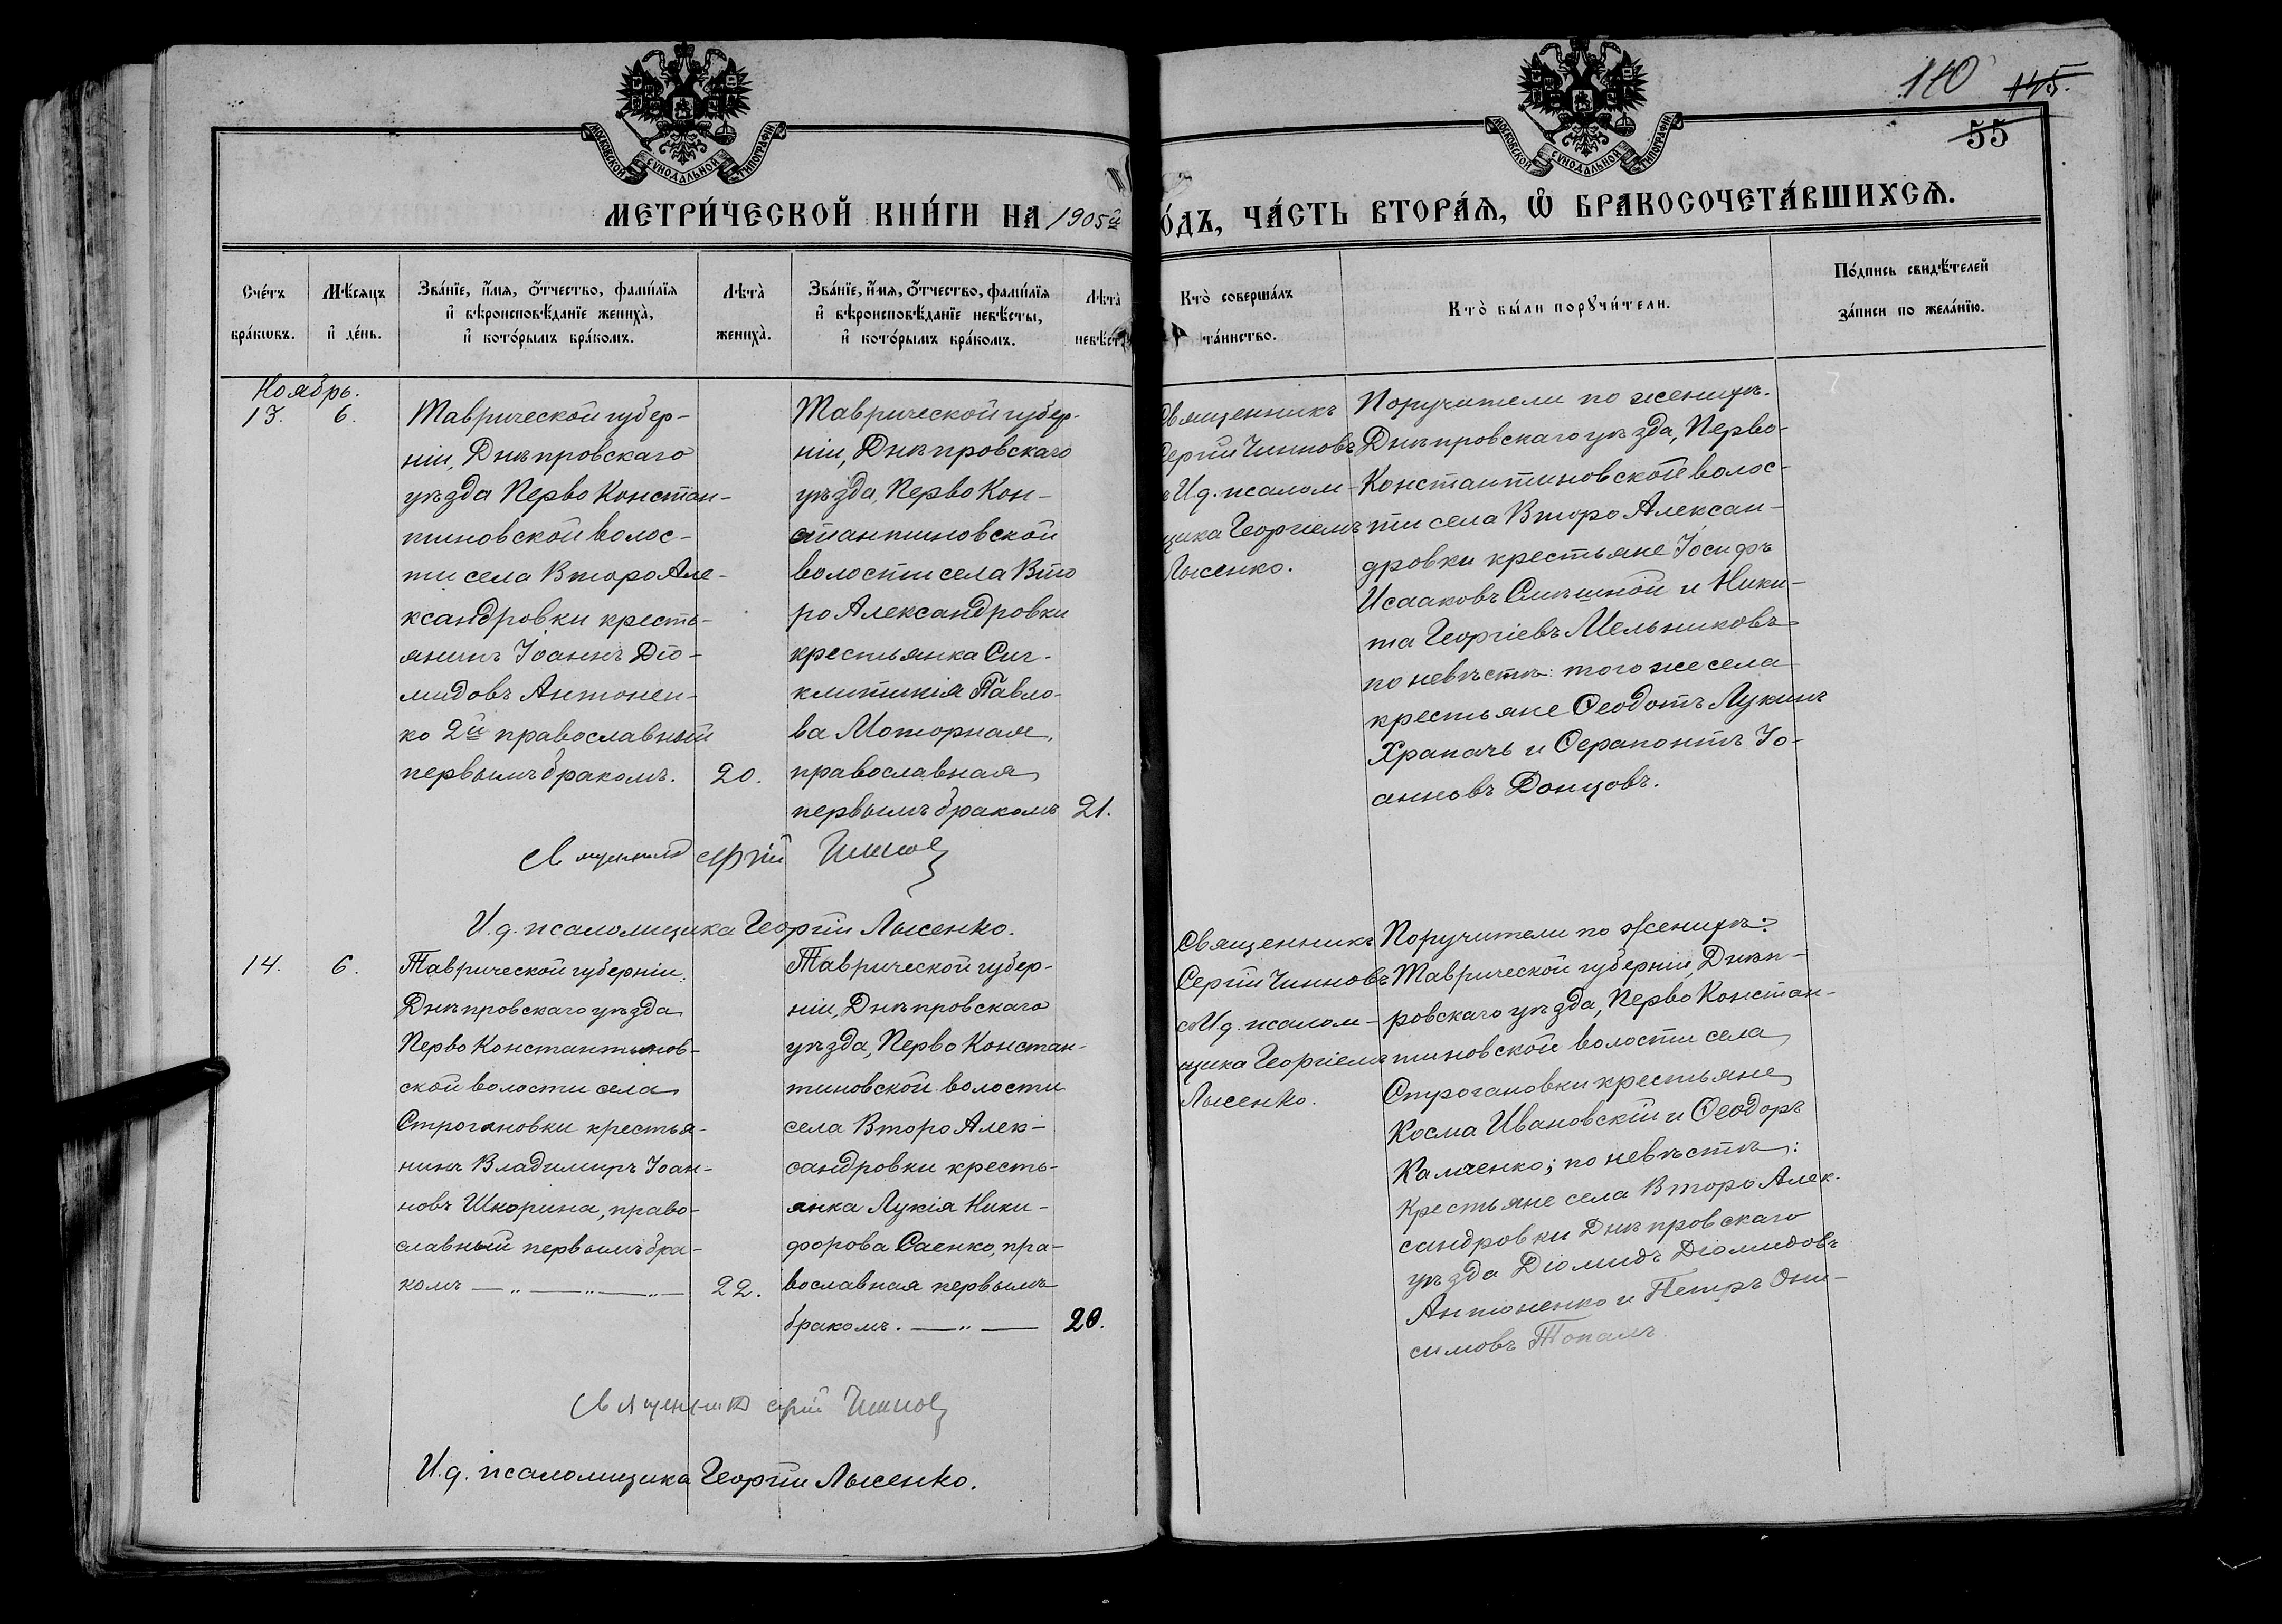 МОСКОВСКОЙ СѴНОДАЛЬНОЙ ТИПОГРАФІИ
МОСКОВСКОЙ СѴНОДАЛЬНОЙ ТИПОГРАФІИ
110 145.
55
МЕТРИ́ЧЕСКОЙ КНИ́ГИ НА 1905й
О́ДЪ, ЧА́СТЬ ВТОРА́Ѧ, Ѽ БРАКОСОЧЕТА́ВШИХСѦ.
Сче́тъ
бра́кѡвъ.
Мѣ́сяцъ
и҆ де́нь.
Зва́нїе, и҆́мя, ѻ҆́тчество, фами́лїя
и҆ вѣроисповѣ́данїе жениха̀,
и҆ кото́рымъ бра́комъ.
Лѣта̀
жениха̀.
Зва́нїе, и҆́мя, ѻ҆́тчество, фами́лїя
и҆ вѣроисповѣ́данїе невѣ́сты,
и҆ кото́рымъ бра́комъ.
Лѣта̀
невѣ́ст
Кто̀ соверша́лъ
та́инство.
Кто̀ бы́ли порꙋчи́тели.
По́дпись свидѣ́телей
за́писи по жела́нїю.
Ноябрь.
13. 6.
Таврической губер-
ніи, Днѣпровскаго
уѣзда Перво Констан-
тиновской волос-
ти села Второ Але-
ксандровки кресть-
янинъ Іоаннъ Діо-
мидовъ Антонен-
ко 2й православный
первымъ бракомъ. 20.
Таврической губер-
ніи, Днѣпровскаго
уѣзда, Перво Кон-
стантиновской
волости села Вто
ро Александровки
крестьянка Син-
клитикія Павло-
ва Моторная,
православная
первымъ бракомъ 21.
Священникъ
Сергій Чинновъ
с И.д. псалом-
щика Георгіемъ
Лысенко.
Поручители по женихѣ.
Днѣпровскаго уѣзда, Перво-
Константиновской волос-
ти села Второ Алексан-
дровки крестьяне Іосифъ
Исааковъ Смѣшной и Ники-
та Георгіевъ Мельниковъ
по невѣстѣ: того же села
крестьяне Ѳеодотъ Лукинъ
Храпачъ и Ѳерапонтъ Іо-
анновъ Донцовъ.
Священникъ Сергій Чинновъ
И.д. псаломщика Георгій Лысенко.
14. 6.
Таврической губерніи,
Днѣпровскаго уѣзда
Перво Константинов-
ской волости села
Строгановки крестья-
нинъ Владимиръ Іоан-
новъ Шкорина, право-
славный первымъ бра-
комъ — „ — „ — „ — 22.
Таврической губер-
ніи, Днѣпровскаго
уѣзда, Перво Констан-
тиновской волости
села Второ Алек-
сандровки кресть-
янка Лукія Ники-
форова Саенко, пра-
вославная первымъ
бракомъ. — „ — 20.
Священникъ
Сергій Чинновъ
с И.д. псалом-
щика Георгіемъ
Лысенко.
Поручители по женихѣ:
Таврической губерніи, Днѣп-
ровскаго уѣзда, Перво Констан-
тиновской волости села
Строгановки крестьяне
Косма Ивановскій и Ѳеодоръ
Калченко; по невѣстѣ:
Крестьяне села Второ Алек-
сандровки Днѣпровскаго
уѣзда Діомидъ Діомидовъ
Антоненко и Петръ Они-
симовъ Топалъ
Священникъ Сергій Чинновъ
И.д. псаломщика Георгій Лысенко.